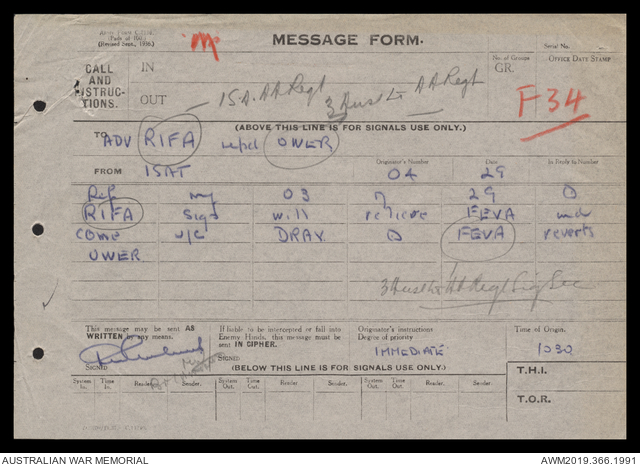 Army Form C.2128.
(Pads of 100.)
(Revised Sept., 1936.)
M
MESSAGE FORM.
Serial No.
CALL AND INSTRUC-TIONS.
IN
OUT
No. of Groups
GR.
OFFICE DATE STAMP
15 A. AA Regt
3 Aust Lt AA Regt
F34
(ABOVE THIS LINE IS FOR SIGNALS USE ONLY.)
TO ADV RIFA reptd OWER
FROM ISAT
Originator's Number 04
Date 29
In Reply to Number
Ref my 03 of 29 O
RIFA Sigs will relieve FEVA who
come u/c DRAY O FEVA reverts
OWER
3 Aust Lt AA Regt Sig Sec
This message may be sent AS WRITTEN by any means.
SIGNED
If liable to be intercepted or fall into Enemy Hands, this message must be sent IN CIPHER.
SIGNED
Originator's Instructions
Degree of priority
IMMEDIATE
Time of Origin.
1030
(BELOW THIS LINE IS FOR SIGNALS USE ONLY.)
System In. Time In. Reader. Sender. System Out. Time Out. Reader. Sender. System Out. Time Out. Reader. Sender.
T.H.I.
T.O.R.
AUSTRALIAN WAR MEMORIAL
AWM2019.366.1991